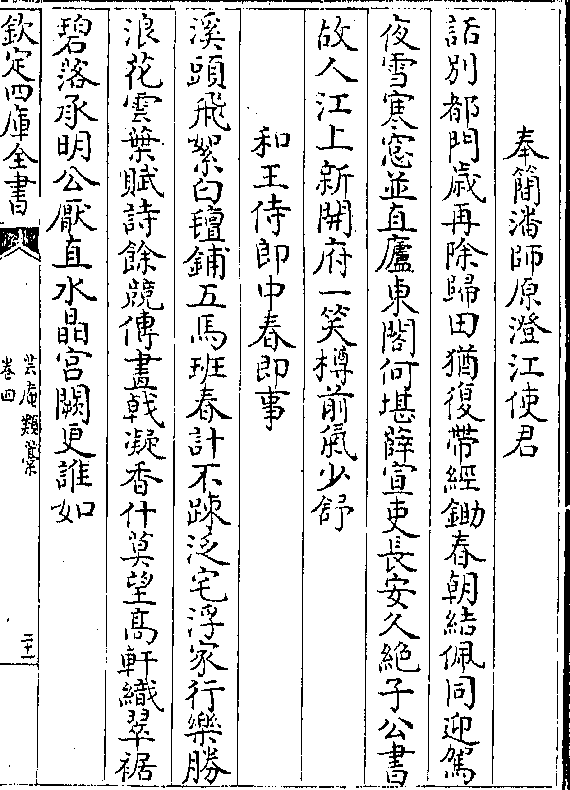 奉簡潘師原澄江使君
話別都門歳再除歸田猶復帶經鋤春朝結佩同迎駕
夜雪寒窓並直廬東閣何堪薛宣吏長安久絶子公書
故人江上新開府一笑樽前氣少舒
和王侍郎中春即事
溪頭飛絮白氊鋪五馬班春計不疎泛宅浮家行樂勝
浪花雲葉賦詩餘競傳畫戟凝香什莫望髙軒織翠裾
碧落承明公厭直水晶宫闕更誰如
欽定四庫全書
芸庵類藁
卷四
二十一